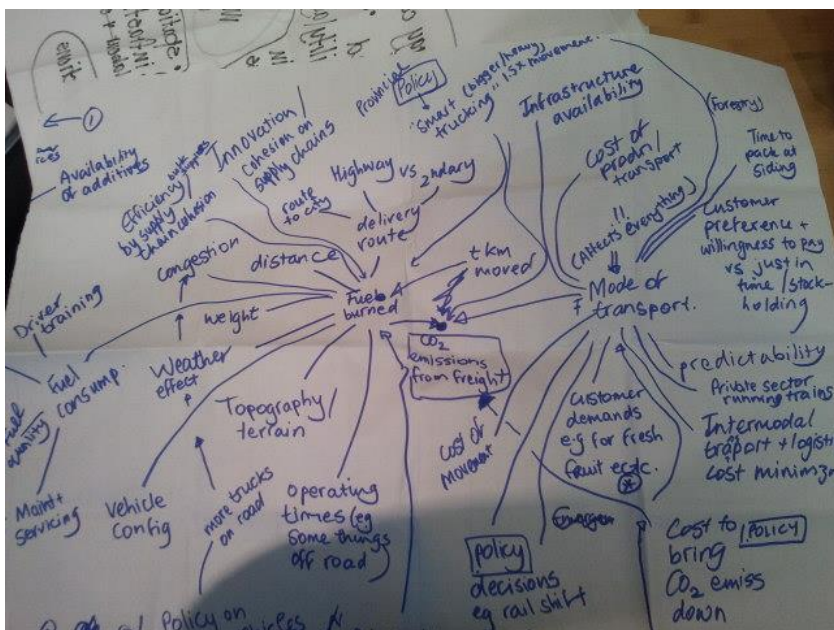 ①
Availability
of additives
Efficiency
by supply
chain cohesion
Innovation/
cohesion on
supply chains
Provincial
Policy
"smart (bigger/heavy)
trucking" 1.5x movement.
Infrastructure
availability
(Forestry)
Time to
pack at
siding
Cost of
prodn/
transport
!!
(Affects everything)
Customer
preference +
willingness to pay
vs just in
time/stock-
holding
Highway vs 2ndary
route
to city
delivery
route
distance
congestion
t km
moved
Mode of
transport.
Fuel
burned
weight
Driver
training
Fuel
consump.
Weather
effect
CO2
emissions
from freight
predictability
Private sector
running trains
Intermodal
traport + logisti
cost minimiz
Customer
demands
e.g for fresh
fruit ectc.
Topography/
terrain
cost of
movement
fuel
quality
Maint +
servicing
Vehicle
Config
more trucks
on road
operating
times (eg
some things
off road)
policy
decisions
eg rail shift
Cost to
bring
CO2 emiss
down
POLICY
Policy on